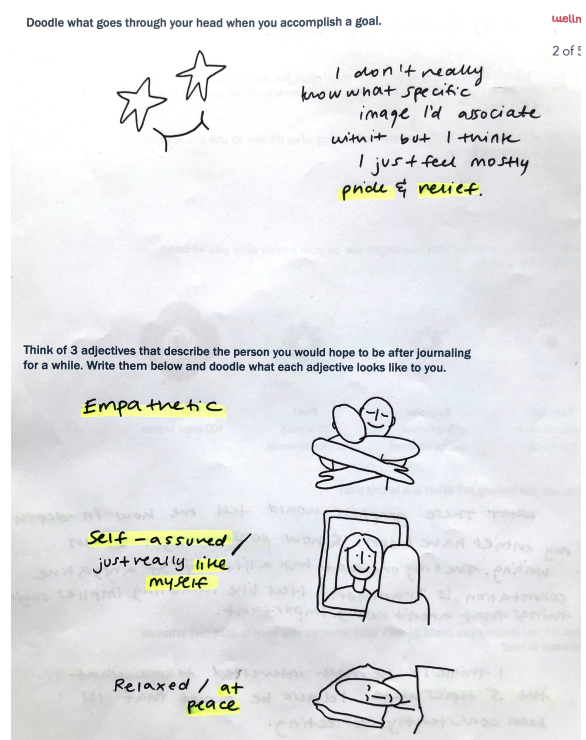 Doodle what goes through your head when you accomplish a goal.
welln
2 of 5
I don't really
know what specific
image I'd associate
with it but I think
I just feel mostly
pride & relief.
Think of 3 adjectives that describe the person you would hope to be after journaling
for a while. Write them below and doodle what each adjective looks like to you.
Empathetic
Self-assured /
just really like
myself
Relaxed / at
peace